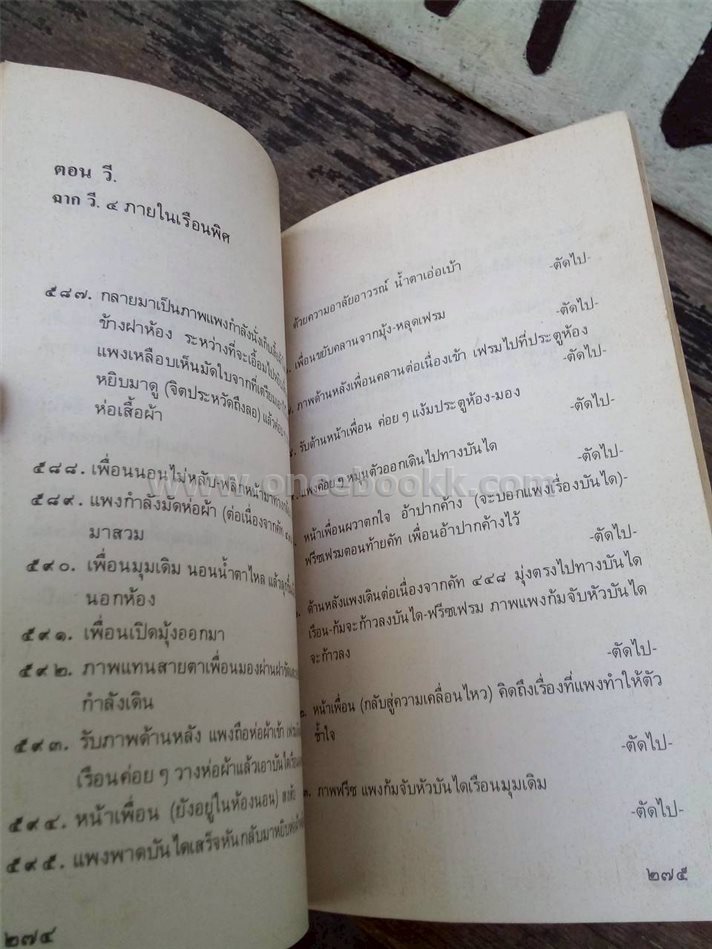 ตอน วี.
ฉาก วี. ๔ ภายในเรือนพิศ
๕๘๗. กลายมาเป็นภาพแพงกำลังนั่งเก็บเสื้อผ้า
ข้างฝาห้อง ระหว่างที่จะเอื้อมไป
แพงเหลือบเห็นมัดใบจากที่เตรียม
หยิบมาดู (จิตประหวัดถึงลอ) แล้ว
ห่อเสื้อผ้า
๕๘๘. เพื่อนนอนไม่หลับ-พลิกหน้ามาทาง
๕๘๙. แพงกำลังมัดห่อผ้า (ต่อเนื่องจากคัท
มาสวม
๕๙๐. เพื่อนมุมเดิม นอนน้ำตาไหล แล้ว
นอกห้อง
๕๙๑. เพื่อนเปิดมุ้งออกมา
๕๙๒. ภาพแทนสายตาเพื่อนมองผ่านฝา
กำลังเดิน
๕๙๓. รับภาพด้านหลัง แพงถือห่อผ้าเข้า
(เรือนค่อยๆ วางห่อผ้าแล้วเอาบันได
๕๙๔. หน้าเพื่อน (ยังอยู่ในห้องนอน)
๕๙๕. แพงพาดบันไดเสร็จหันกลับมาหยิบ
๒๗๔
ด้วยความอาลัยอาวรณ์ น้ำตาเอ่อเบ้า
-ตัดไป-
เพื่อนขยับคลานจากมุ้ง-หลุดเฟรม
-ตัดไป-
ภาพด้านหลังเพื่อนคลานต่อเนื่องเข้า เฟรมไปที่ประตูห้อง
-ตัดไป-
รับด้านหน้าเพื่อน ค่อยๆ แง้มประตูห้อง-มอง
-ตัดไป-
แพงค่อยๆ หมุนตัวออกเดินไปทางบันได
-ตัดไป-
หน้าเพื่อนผวาตกใจ อ้าปากค้าง (จะบอกแพงเรื่องบันได)-
ฟรีซเฟรมตอนท้ายคัท เพื่อนอ้าปากค้างไว้
-ตัดไป-
ด้านหลังแพงเดินต่อเนื่องจากคัท ๔๔๘ มุ่งตรงไปทางบันได
เรือน-ก้มจะก้าวลงบันได-ฟรีซเฟรม ภาพแพงก้มจับหัวบันได
จะก้าวลง
-ตัดไป-
หน้าเพื่อน (กลับสู่ความเคลื่อนไหว) คิดถึงเรื่องที่แพงทำให้ตัว
ช้ำใจ
-ตัดไป-
ภาพฟรีซ แพงก้มจับหัวบันไดเรือนมุมเดิม
-ตัดไป-
๒๗๕
www.oncebookk.com